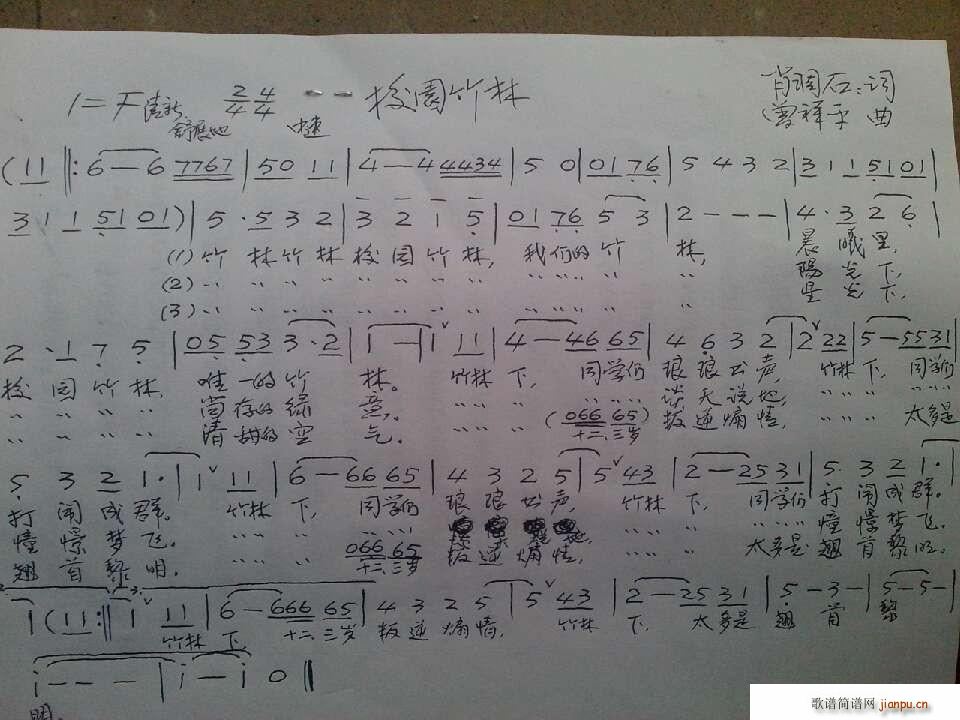 1=F 清新 舒展地 2/4 4/4 中速 校园竹林 肖调石:词
曾祥平 曲
(11 ‖: 6 — 6 7767 | 50 11 | 4 — 4 4434 | 5 0 | 01 76 | 5 4 3 2 | 3 1 1 51 01 |
3 1 1 51 01) | 5 · 5 3 2 | 3 2 1 5 | 01 76 5 3 | 2 - - - | 4 · 3 2 6 |
(1) 竹 林 竹 林 校 园 竹 林, 我们的 竹 林, 晨 曦 里,
(2) 〃 〃 〃 〃 〃 〃 〃 〃 〃 〃 〃 〃 阳 光 下,
(3) 〃 〃 〃 〃 〃 〃 〃 〃 〃 〃 〃 〃 星 光 下,
2 · 1 7 5 | 05 53 3 · 2 | 1 — | 1 ˅ 11 | 4 — 46 65 | 4 6 3 2 | 2 ˅ 22 | 5 — 55 31 |
校 园 竹 林, 唯一的 竹 林。 竹林 下, 同学们 琅 琅 书 声, 竹林 下, 同学们
〃 〃 〃 〃 尚存的 绿 意, 〃 〃 〃 〃 〃 〃 谈 天 说 地, 〃 〃 〃 〃 〃 〃
〃 〃 〃 〃 清甜的 空 气。 〃 〃 〃 (066 65) 十二、三岁 叛 逆 煽 情, 〃 〃 〃 太多是
5 3 2 1 · | 1 ˅ 11 | 6 — 66 65 | 4 3 2 5 | 5 ˅ 43 | 2 — 25 31 | 5 3 2 1 · |
打 闹 成 群。 竹林 下, 同学们 琅 琅 书 声, 竹林 下, 同学们 打 闹 成 群。
憧 憬 梦 飞。 〃 〃 〃 〃 〃 〃 〃 〃 〃 〃 〃 〃 憧 憬 梦 飞。
翘 首 黎 明, 〃 〃 〃 066 65 十二、三岁 叛 逆 煽 情, 〃 〃 〃 太多是 翘 首 黎 明。
1 (11 :‖ 1 ˅ 11 | 6 — 666 65 | 4 3 2 5 | 5 ˅ 43 | 2 — 25 31 | 5 - 3 - | 5 - 5 - |
竹林 下, 十二、三岁 叛 逆 煽 情, 竹林 下, 太多是 翘 首 黎
i - - - | i — i 0 ‖
明。
歌谱简谱网 jianpu.cn